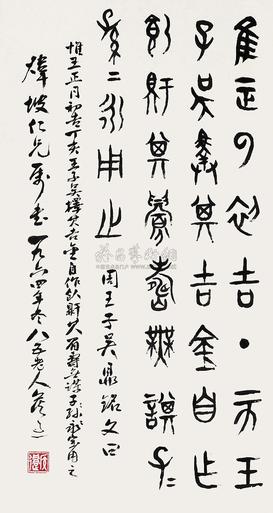 隹正月初吉丁亥王
子吴擇其吉金自乍
飤鼾其眉壽無諆子二
孫二永用之 周王子吴鼎銘文曰
惟王正月初吉丁亥王子吴擇其吉金自作飤鼾其眉壽無諆子孫永寶用之
坡仁兄属書一九六四年冬八五老人